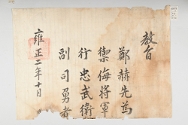 教旨
鄭赫先為
禦侮將軍
行忠武衛
副司勇者
雍正二年十月